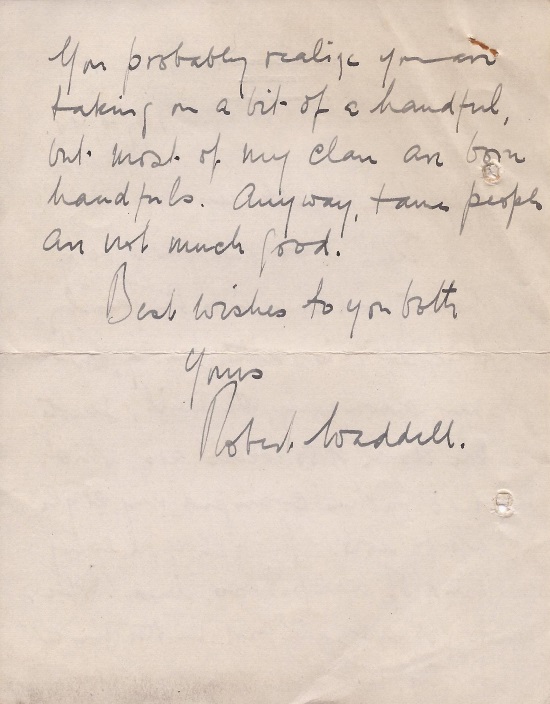 You probably realize you are
taking on a bit of a handful,
but most of my clan are born
handfuls. Anyway, tame people
are not much good.
Best wishes to you both
Yours
Robert Waddell.